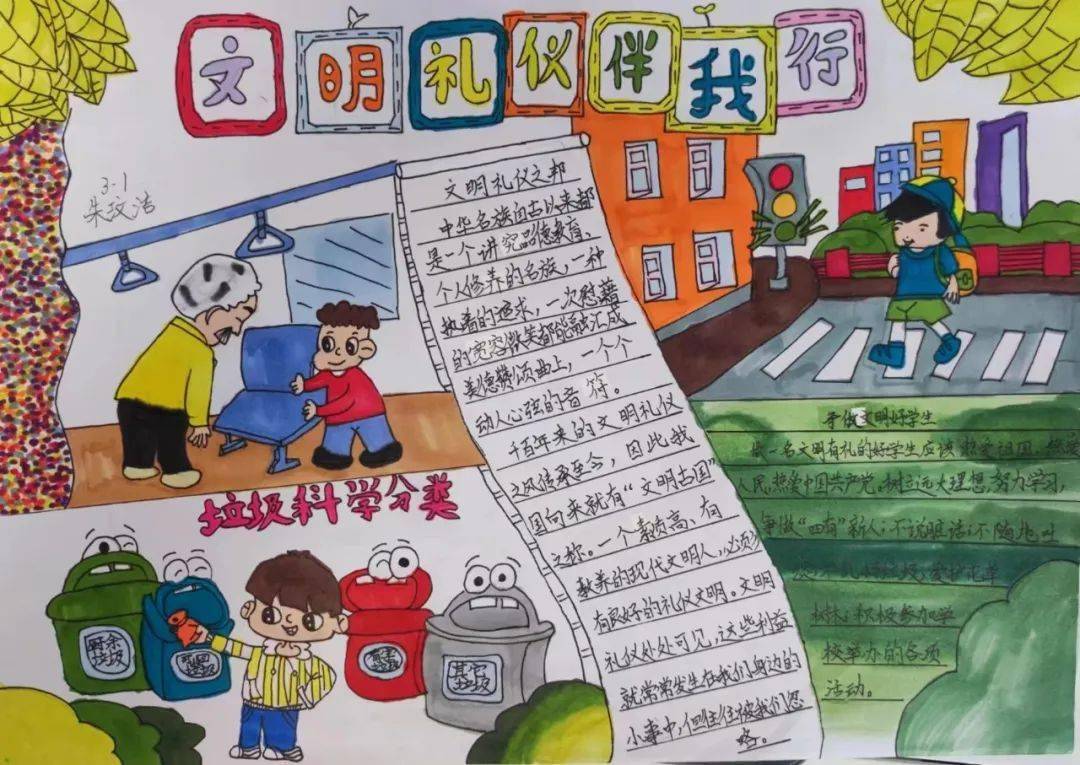 文明礼仪伴我行
3.1
朱玟洁
文明礼仪之邦
中华名族自古以来都
是一个讲究品德教育、
个人修养的名族，一种
执着的追求，一次慰藉
的宽容微笑都能融汇成
美德赞颂曲上，一个个
动人心弦的音符。
千百年来的文明礼仪
之风传承至今，因此我
国向来就有“文明古国”
之称。一个素质高、有
教养的现代文明人，必须
有良好的礼仪文明。文明
礼仪处处可见，这些利益
就常常发生在我们身边的
小事中，但往往被我们忽
略。
垃圾科学分类
厨余
垃圾
可回收
有害
垃圾
其它
垃圾
争做文明好学生
做一名文明有礼的好学生应该热爱祖国、热爱
人民，热爱中国共产党。树立远大理想，努力学习，
争做“四有”新人；不说脏话；不随地吐
爱护花草
树木；积极参加学
校举办的各项
活动。